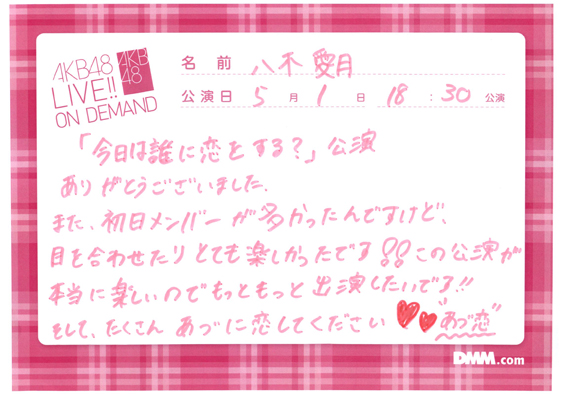 AKB48
LIVE!!
ON DEMAND
AKB
48
名前 八木愛月
公演日 5月1日 18:30公演
「今日は誰に恋をする?」公演
ありがとうございました.
また、初日メンバーが多かったんですけど、
目を合わせたりとても楽しかったです!!この公演が
本当に楽しいのでもっともっと出演したいです!!
そして、たくさんあづに恋してください♥♥"あづ恋"
DMM.com